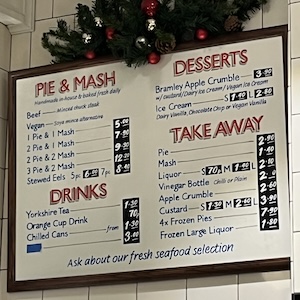 PIE & MASH
Handmade in-house & baked fresh daily
Beef
Minced chuck steak
Vegan
Soya mince alternative
1 Pie & 1 Mash
1 Pie & 2 Mash
2 Pie & 2 Mash
3 Pie & 2 Mash
Stewed Eels 5pc 6.00 7pc
DRINKS
Yorkshire Tea 1.50
Orange Cup Drink
Chilled Cans from 3.00
DESSERTS
Bramley Apple Crumble
w/ custard/Dairy Ice Cream/Vegan Ice Cream
Ice Cream S 1.40 L
Dairy Vanilla, Chocolate Chip or Vegan Vanilla
TAKE AWAY
Pie
Mash
Liquor S 70p M 1.40
Vinegar Bottle Chilli or Plain
Apple Crumble
Custard S 1.30 M 2.40 L
4x Frozen Pies
Frozen Large Liquor
Ask about our fresh seafood selection